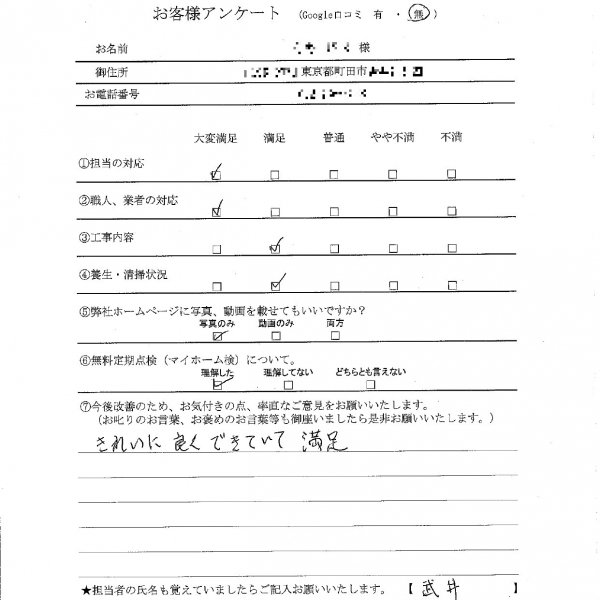 お客様アンケート （Google口コミ 有 ・ 無）
お名前 様
御住所 東京都町田市
お電話番号
大変満足 満足 普通 やや不満 不満
①担当の対応 ☑ □ □ □ □
②職人、業者の対応 ☑ □ □ □ □
③工事内容 □ ☑ □ □ □
④養生・清掃状況 □ ☑ □ □ □
⑤弊社ホームページに写真、動画を載せてもいいですか？
写真のみ 動画のみ 両方
☑ □ □
⑥無料定期点検（マイホーム検）について。
理解した 理解してない どちらとも言えない
☑ □ □
⑦今後改善のため、お気付きの点、率直なご意見をお願いいたします。
（お叱りのお言葉、お褒めのお言葉等も御座いましたら是非お願いします。）
きれいに良くできていて 満足
★担当者の氏名も覚えていましたらご記入お願いいたします。 【 武井 】